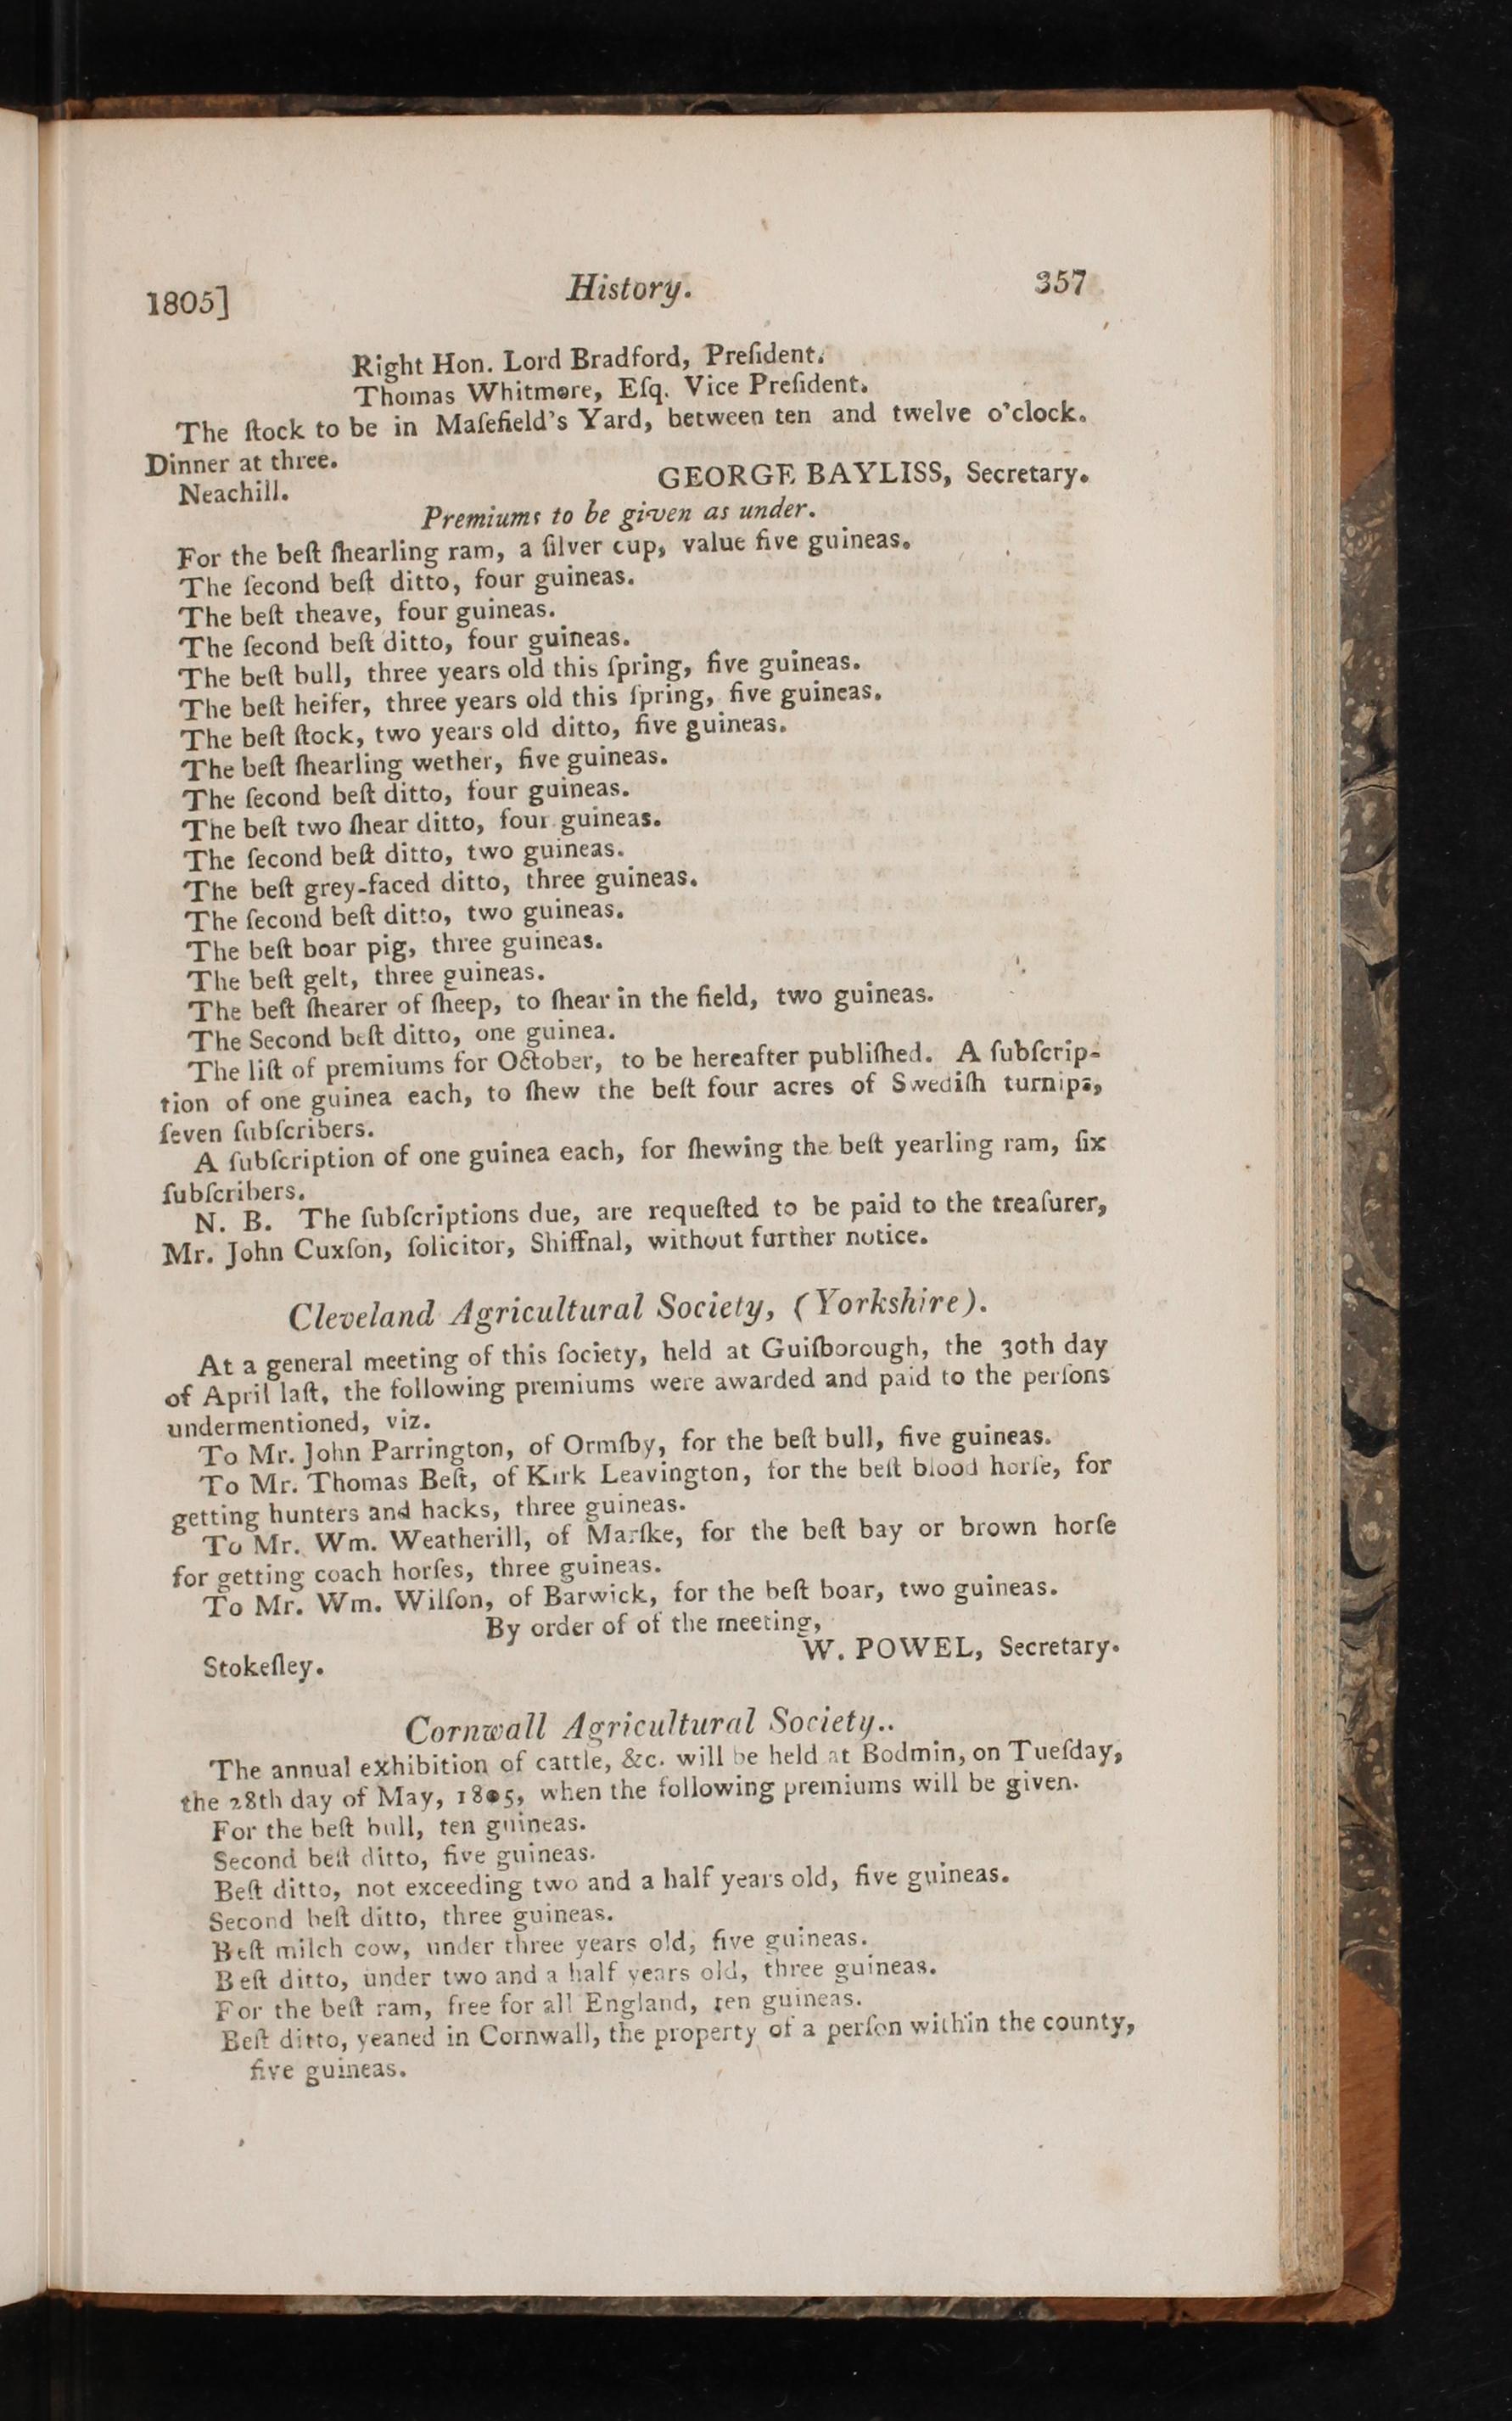 1805] History. 357
Right Hon. Lord Bradford, Preſident.
Thomas Whitmore, Eſq. Vice Preſident.
The ſtock to be in Maſefield's Yard, between ten and twelve o'clock.
Dinner at three.
GEORGE BAYLISS, Secretary.
Neachill.
Premiums to be given as under.
For the beſt ſhearling ram, a ſilver cup, value five guineas.
The ſecond beſt ditto, four guineas.
The beſt theave, four guineas.
The ſecond beſt ditto, four guineas.
The beſt bull, three years old this ſpring, five guineas.
The beſt heifer, three years old this ſpring, five guineas.
The beſt ſtock, two years old ditto, five guineas.
The beſt ſhearling wether, five guineas.
The ſecond beſt ditto, four guineas.
The beſt two ſhear ditto, four guineas.
The ſecond beſt ditto, two guineas.
The beſt grey-faced ditto, three guineas.
The ſecond beſt ditto, two guineas.
The beſt boar pig, three guineas.
The beſt gelt, three guineas.
The beſt ſhearer of ſheep, to ſhear in the field, two guineas.
The Second beſt ditto, one guinea.
The liſt of premiums for October, to be hereafter publiſhed. A ſubſcrip-
tion of one guinea each, to ſhew the beſt four acres of Swediſh turnips,
ſeven ſubſcribers.
A ſubſcription of one guinea each, for ſhewing the beſt yearling ram, ſix
ſubſcribers.
N. B. The ſubſcriptions due, are requeſted to be paid to the treaſurer,
Mr. John Cuxſon, ſolicitor, Shiffnal, without further notice.
Cleveland Agricultural Society, (Yorkshire).
At a general meeting of this ſociety, held at Guiſborough, the 30th day
of April laſt, the following premiums were awarded and paid to the perſons
undermentioned, viz.
To Mr. John Parrington, of Ormſby, for the beſt bull, five guineas.
To Mr. Thomas Beſt, of Kirk Leavington, for the beſt blood horſe, for
getting hunters and hacks, three guineas.
To Mr. Wm. Weatherill, of Marſke, for the beſt bay or brown horſe
for getting coach horſes, three guineas.
To Mr. Wm. Wilſon, of Barwick, for the beſt boar, two guineas.
By order of of the meeting,
W. POWEL, Secretary.
Stokeſley.
Cornwall Agricultural Society..
The annual exhibition of cattle, &c. will be held at Bodmin, on Tueſday,
the 28th day of May, 1805, when the following premiums will be given.
For the beſt bull, ten guineas.
Second beſt ditto, five guineas.
Beſt ditto, not exceeding two and a half years old, five guineas.
Second beſt ditto, three guineas.
Beſt milch cow, under three years old, five guineas.
Beſt ditto, under two and a half years old, three guineas.
For the beſt ram, free for all England, ten guineas.
Beſt ditto, yeaned in Cornwall, the property of a perſon within the county,
five guineas.